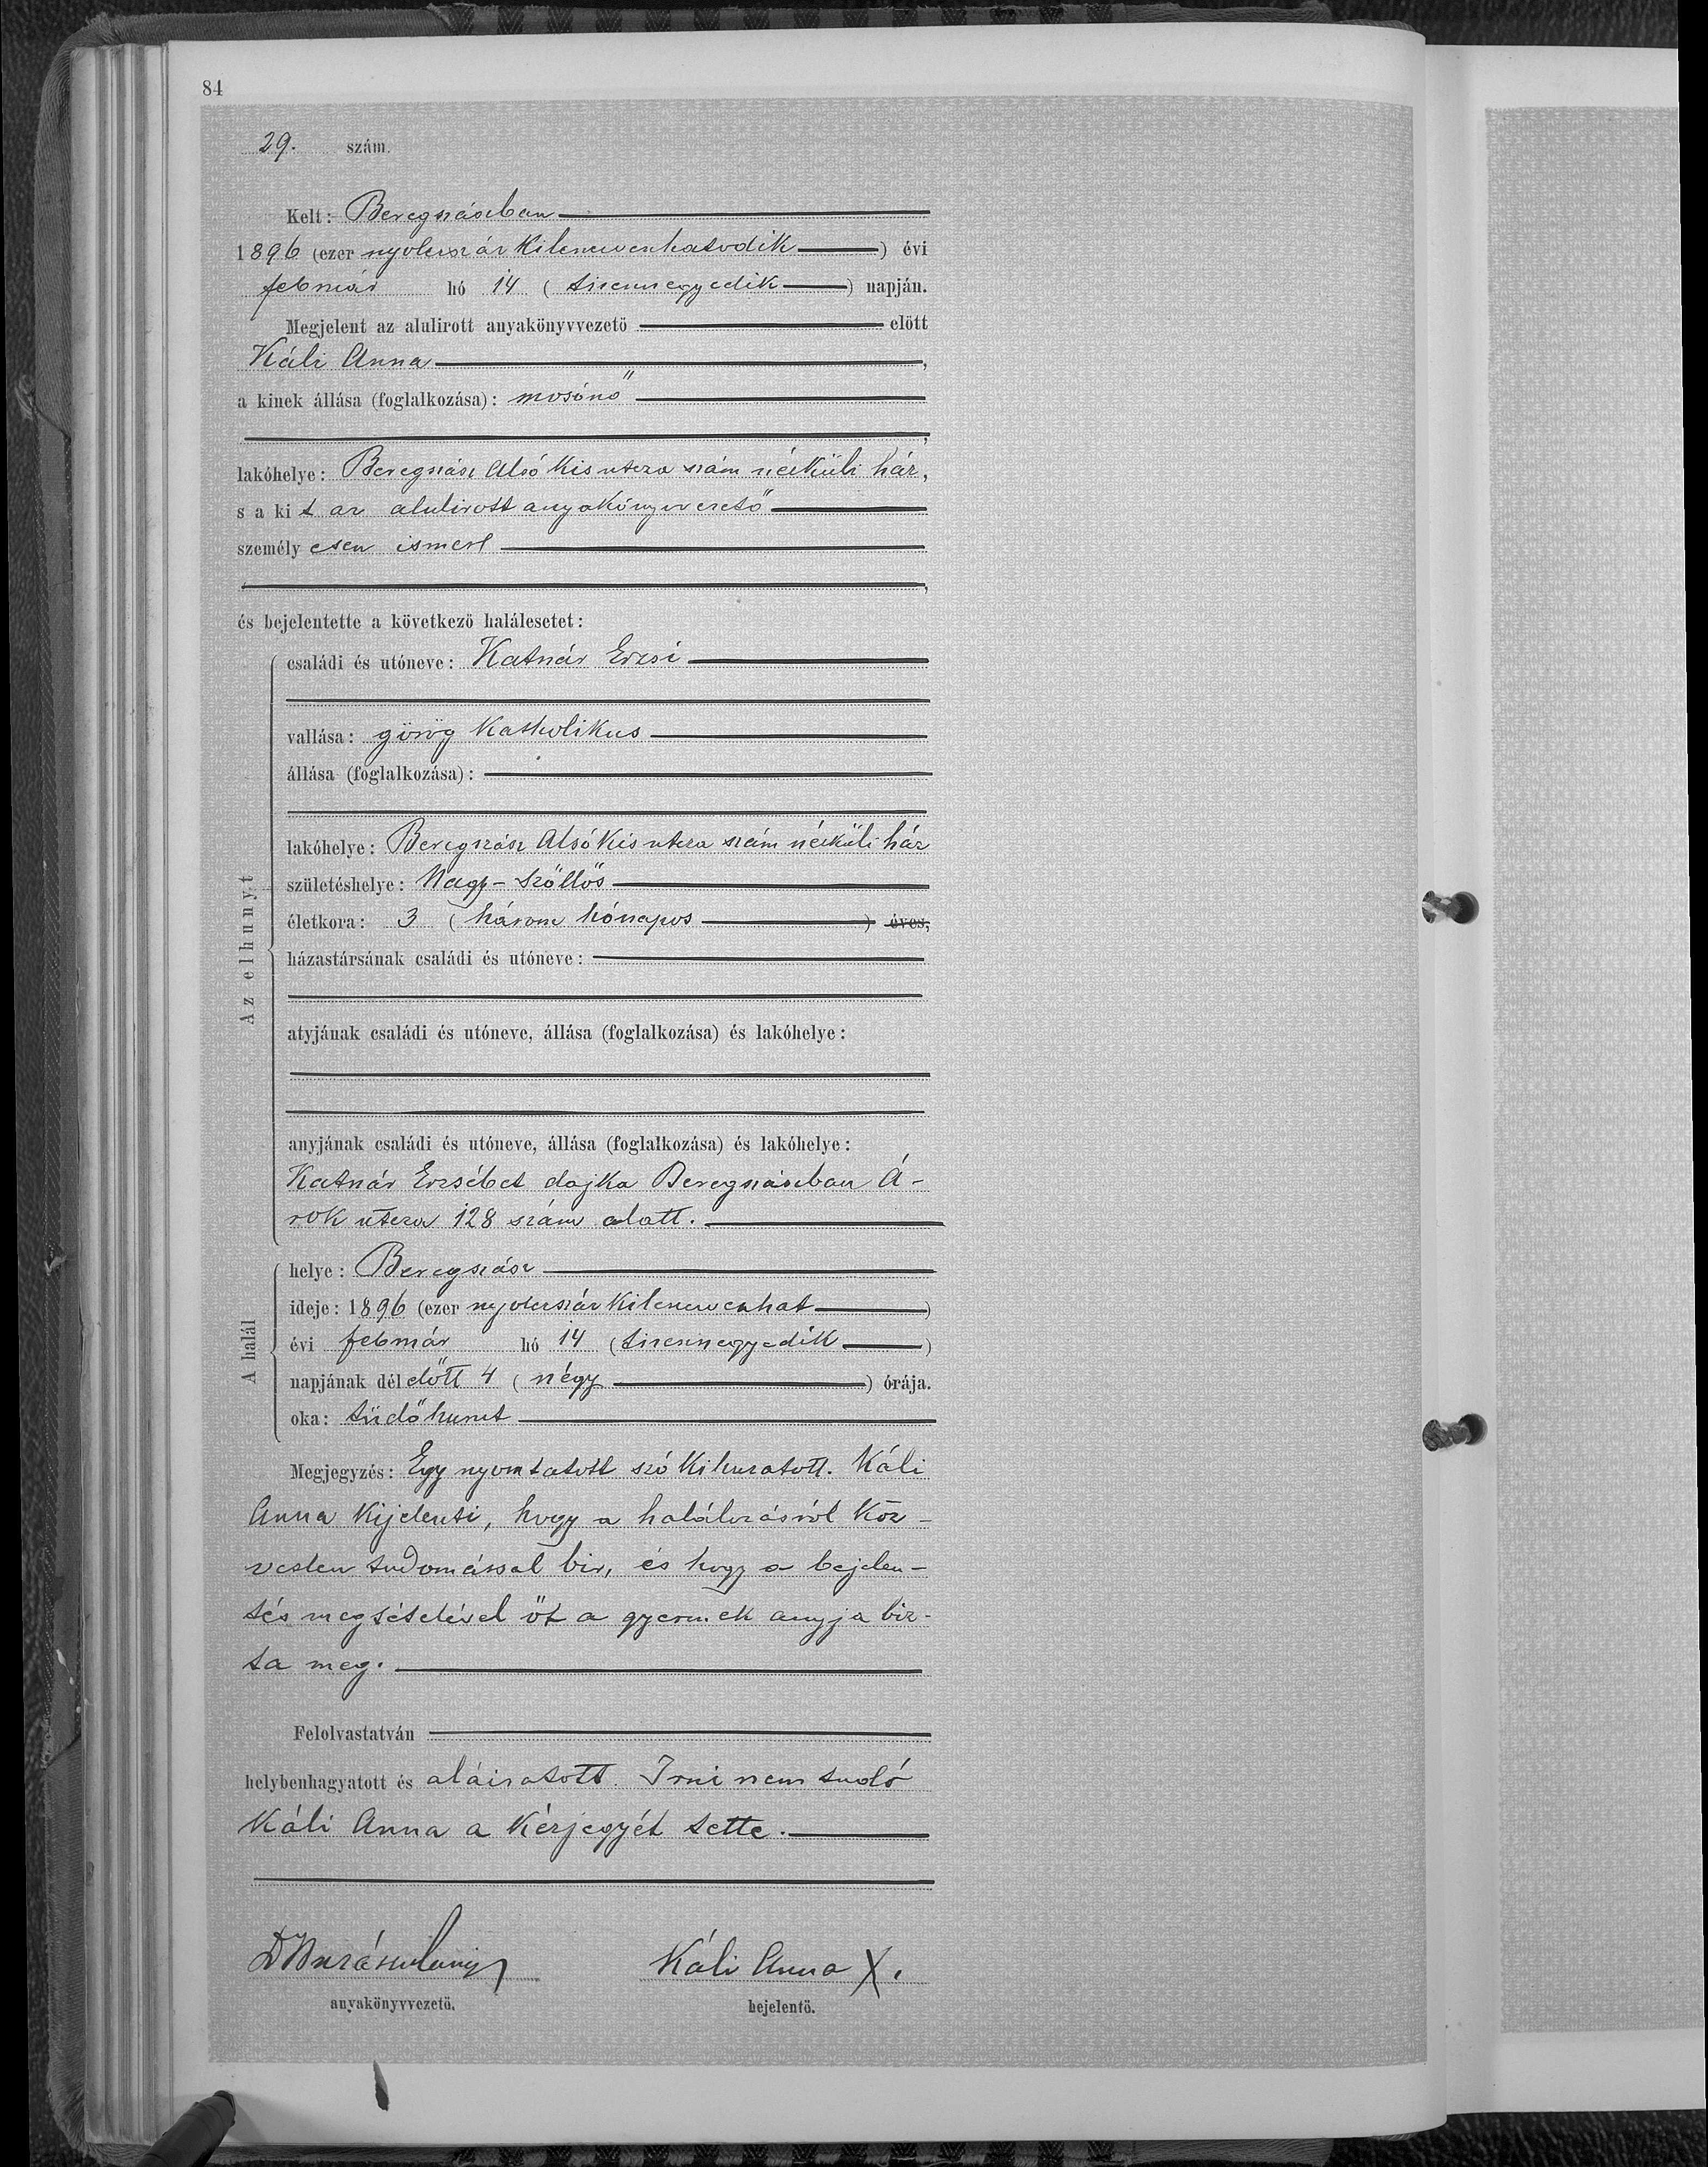 84
29. szám.
Kelt: Beregszászban
1896 (ezer nyolcszáz kilencvenhatodik) évi
február hó 14 (tizennegyedik) napján.
Megjelent az alulirott anyakönyvvezető előtt
Káli Anna,
a kinek állása (foglalkozása): mosónő
,
lakóhelye: Beregszász Alsó Kis utcza szám nélküli ház,
s a kit az alulirott anyakönyvvezető
személyesen ismer
,
és bejelentette a következő halálesetet:
Az elhunyt
családi és utóneve: Katnár Erzsi
vallása: görög katholikus
állása (foglalkozása):
lakóhelye: Beregszász Alsó Kis utcza szám nélküli ház
születéshelye: Nagy-Szőllős
életkora: 3 (három hónapos) éves,
házastársának családi és utóneve:
atyjának családi és utóneve, állása (foglalkozása) és lakóhelye:
anyjának családi és utóneve, állása (foglalkozása) és lakóhelye:
Katnár Erzsébet dajka Beregszászban Á-
rok utcza 128 szám alatt.
A halál
helye: Beregszász
ideje: 1896 (ezer nyolcszáz kilencvenhat)
évi február hó 14 (tizennegyedik)
napjának délelőtt 4 (négy) órája.
oka: tüdőhurut
Megjegyzés: Egy nyomtatott szó kihuzatott. Káli
Anna kijelenti, hogy a halálozásról köz-
vetlen tudomással bir, és hogy a bejelen-
tés megtételével őt a gyermek anyja biz-
ta meg.
Felolvastatván
helybenhagyatott és aláiratott. Irni nem tudó
Káli Anna a kézjegyét tette.
Káli Anna X.
anyakönyvvezető. bejelentő.